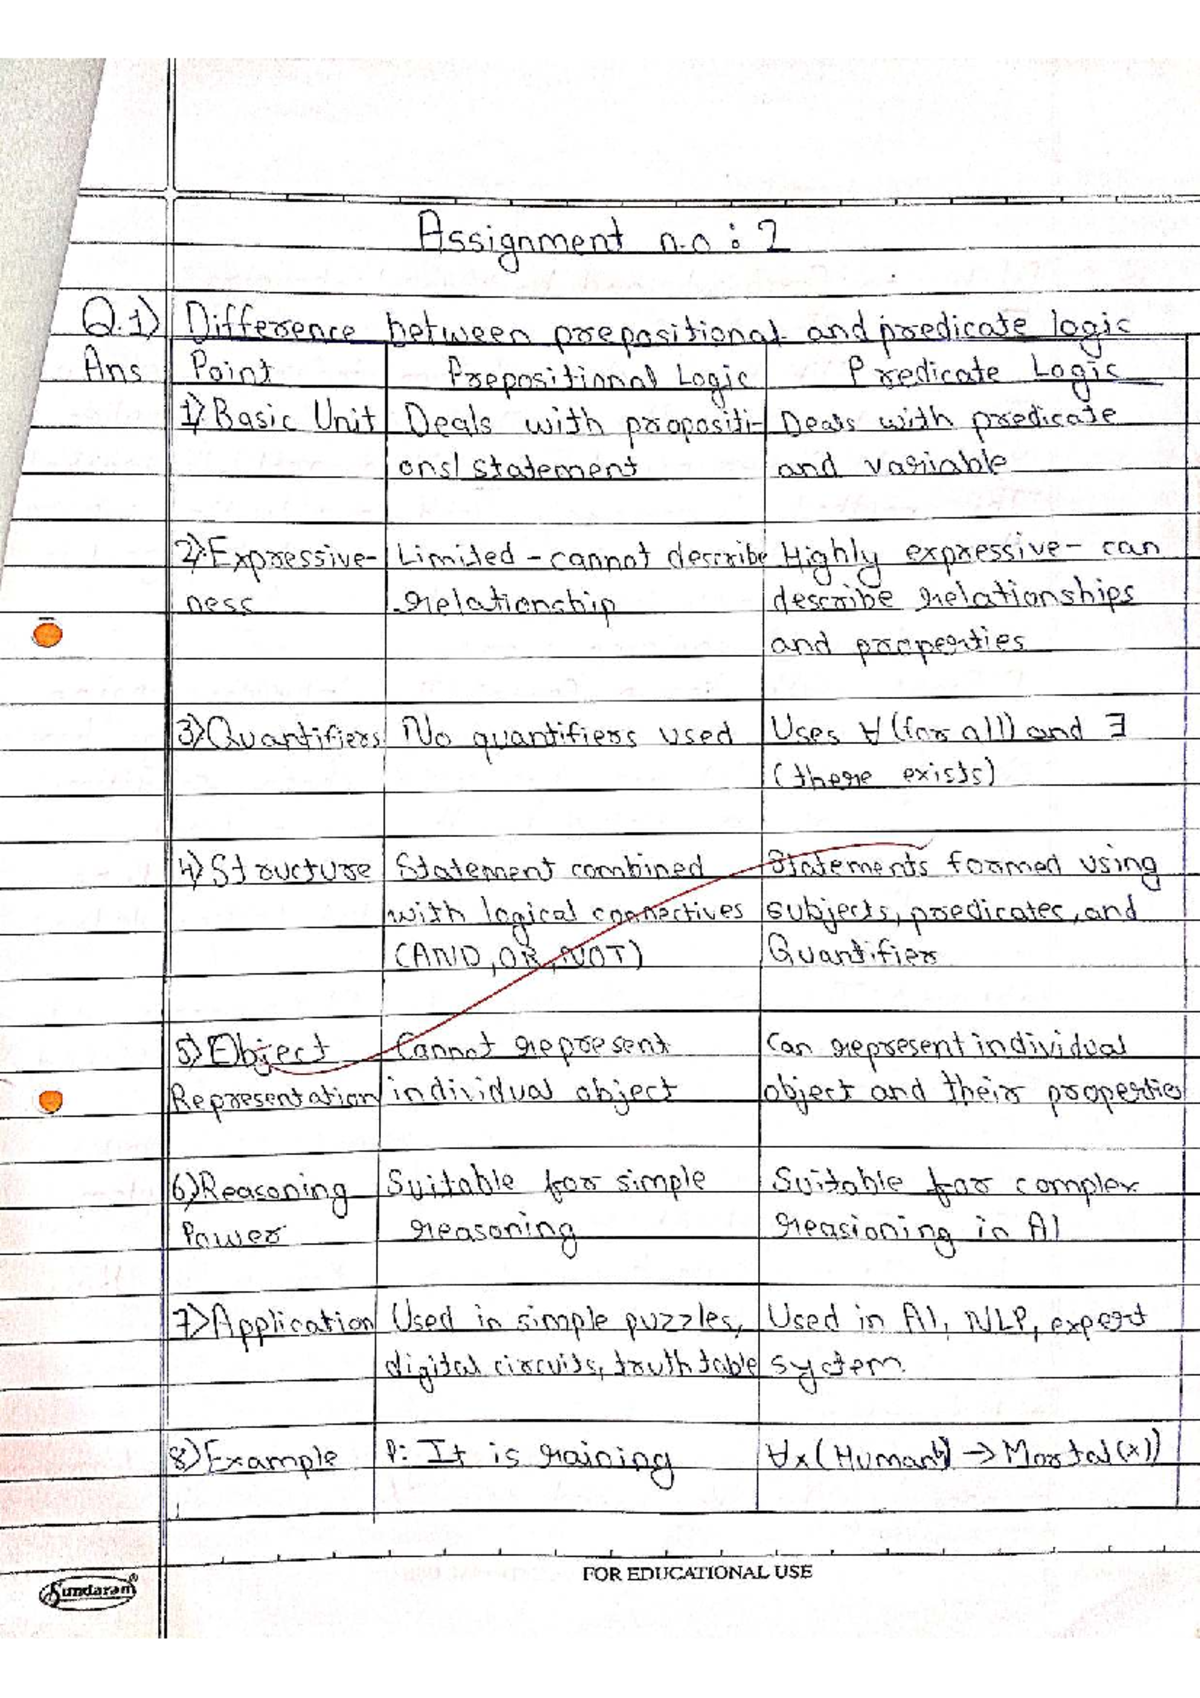 Assignment no : 2
Q.1) Difference between prepositional and predicate logic
Ans Point Prepositional Logic Predicate Logic
1) Basic Unit Deals with propositi- Deals with predicate
ons/statement and variable
2) Expressive- Limited - cannot describe Highly expressive - can
ness relationship describe relationships
and properties
3) Quantifiers No quantifiers used Uses ∀ (for all) and ∃
(there exists)
4) Structure Statement combined Statements formed using
with logical connectives subjects, predicates, and
(AND, OR, NOT) Quantifier
5) Object Cannot represent Can represent individual
Representation individual object object and their properties
6) Reasoning Suitable for simple Suitable for complex
Power reasoning reasioning in AI
7) Application Used in simple puzzles, Used in AI, NLP, expert
digital circuits, truth table system.
8) Example P: It is raining ∀x (Human → Mortal(x))
FOR EDUCATIONAL USE
Sundaram®